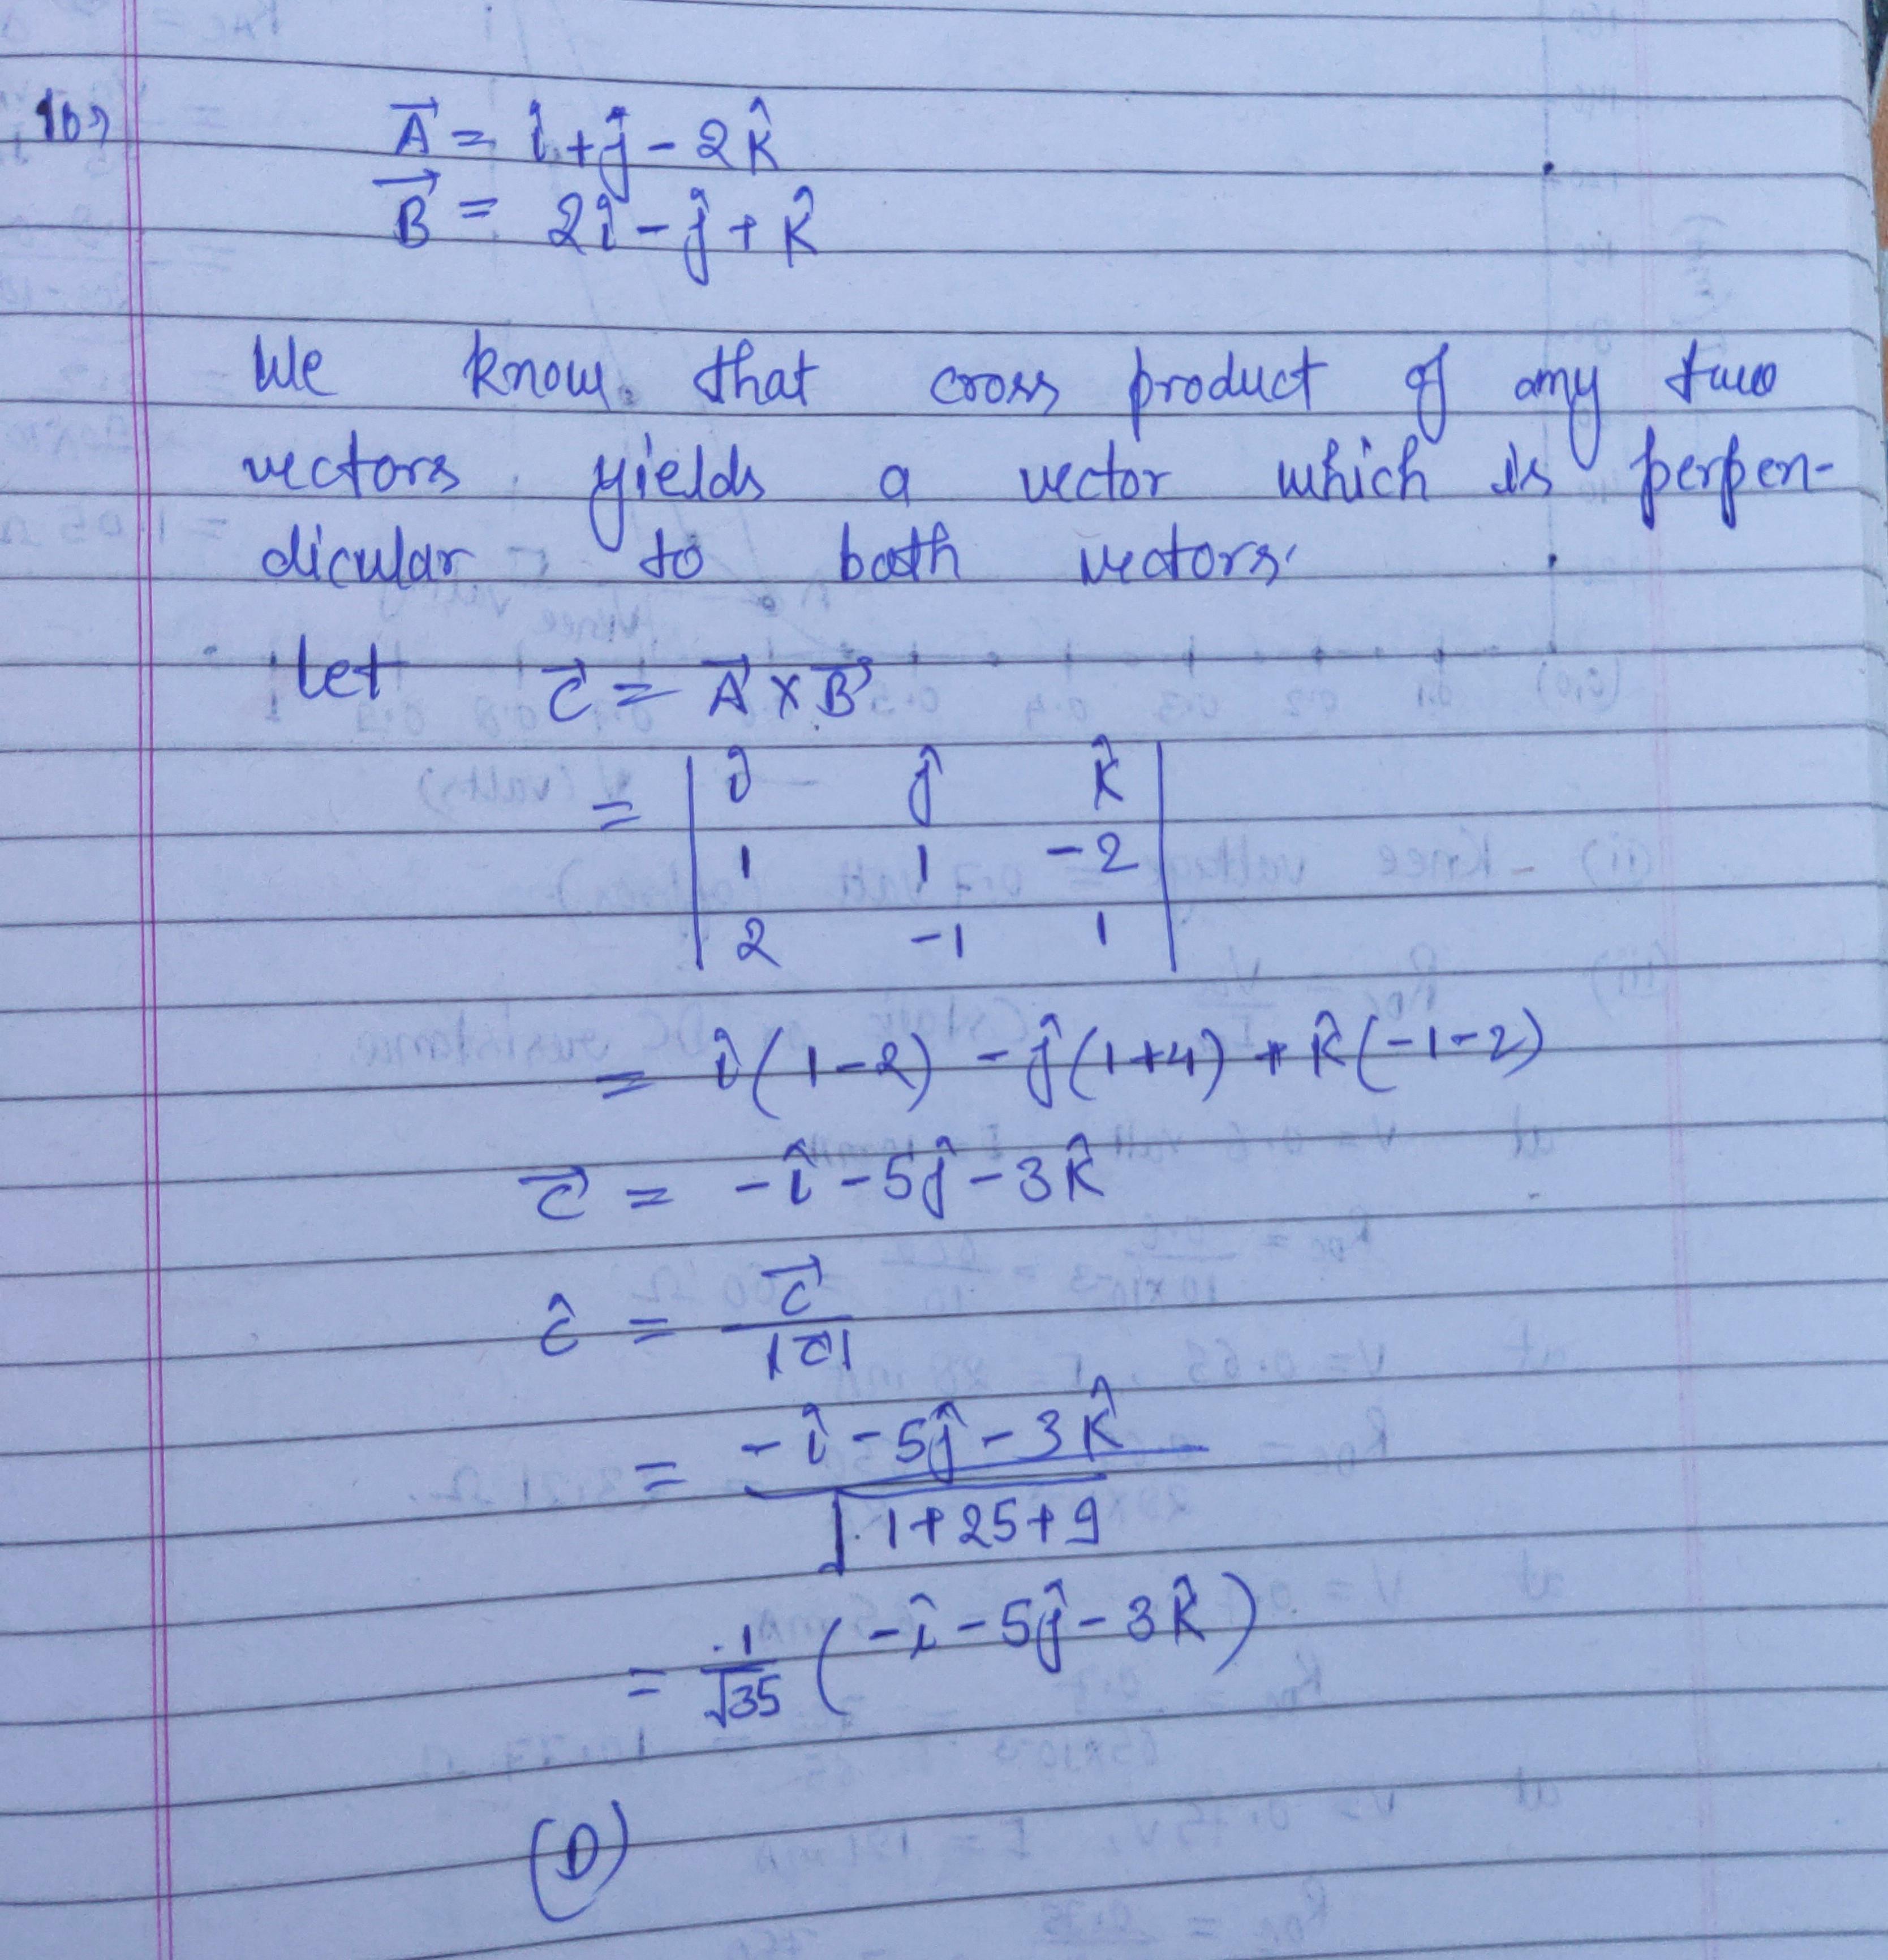 10>
A⃗ = î + ĵ - 2k̂
B⃗ = 2î - ĵ + k̂
We know that cross product of any two
vectors yields a vector which is perpen-
dicular to both vectors.
Let C⃗ = A⃗ × B⃗
= | î ĵ k̂ |
| 1 1 -2 |
| 2 -1 1 |
= î(1-2) - ĵ(1+4) + k̂(-1-2)
C⃗ = -î - 5ĵ - 3k̂
ĉ = C⃗ / |C⃗|
= (-î - 5ĵ - 3k̂) / √(1+25+9)
= 1/√35 (-î - 5ĵ - 3k̂)
(D)